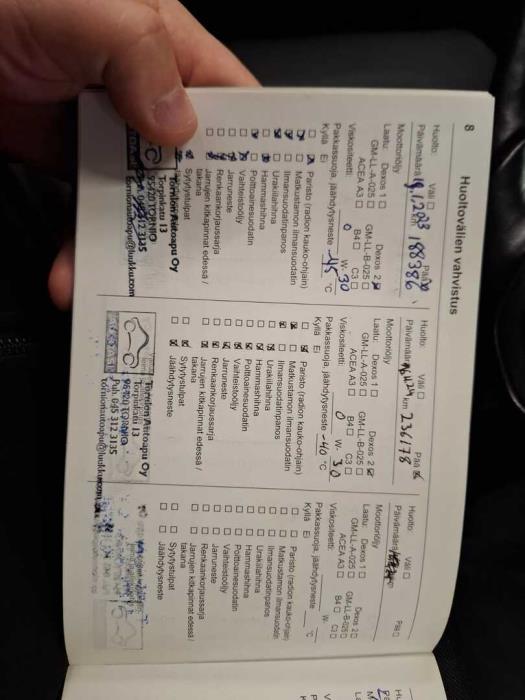 8
Huoltovälien vahvistus
Huolto: Väli □ Pää ☒
Päivämäärä 19.1.2023 km 188386
Moottoriöljy
Laatu: Dexos 1 □ Dexos 2 ☒
GM-LL-A-025 □ GM-LL-B-025 □
ACEA A3 □ B4 □ C3 □
Viskositeetti: 0 W- 30
Pakkassuoja, jäähdytysneste -45 °C
Kyllä Ei
Paristo (radion kauko-ohjain)
Matkustamon ilmansuodatin
Ilmansuodatinpanos
Urakiilahihna
Hammashihna
Polttoainesuodatin
Vaihteistoöljy
Jarruneste
Renkaankorjaussarja
Jarrujen kitkapinnat edessä /
takana
Sytytystulpat
Tornion Autoapu Oy
Torpinkatu 13
95420 TORNIO
Huolto: Väli □ Pää ☒
Päivämäärä km 236178
Moottoriöljy
Laatu: Dexos 1 □ Dexos 2 ☒
GM-LL-A-025 □ GM-LL-B-025 □
ACEA A3 □ B4 □ C3 □
Viskositeetti: 0 W- 30
Pakkassuoja, jäähdytysneste -40 °C
Kyllä Ei
Paristo (radion kauko-ohjain)
Matkustamon ilmansuodatin
Ilmansuodatinpanos
Urakiilahihna
Hammashihna
Polttoainesuodatin
Vaihteistoöljy
Jarruneste
Renkaankorjaussarja
Jarrujen kitkapinnat edessä /
takana
Sytytystulpat
Jäähdytysneste
Tornion Autoapu Oy
Torpinkatu 13
95420 TORNIO
Huolto: Väli □ Pää □
Päivämäärä
Moottoriöljy
Laatu: Dexos 1 □ Dexos 2 □
GM-LL-A-025 □ GM-LL-B-025 □
ACEA A3 □ B4 □ C3 □
Viskositeetti: W-
Pakkassuoja, jäähdytysneste °C
Kyllä Ei
Paristo (radion kauko-ohjain)
Matkustamon ilmansuodatin
Ilmansuodatinpanos
Urakiilahihna
Hammashihna
Polttoainesuodatin
Vaihteistoöljy
Jarruneste
Renkaankorjaussarja
Jarrujen kitkapinnat edessä /
takana
Sytytystulpat
Jäähdytysneste